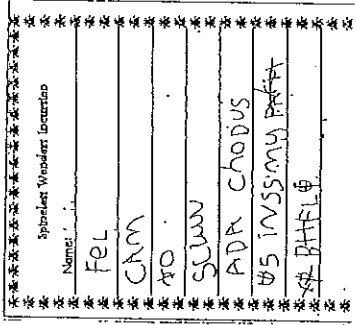 Spineless Wonders Incursion
Name:
FeL
CAM
tO
SLUW
ADA ChODUS
#5 iNSSimy
BHFL